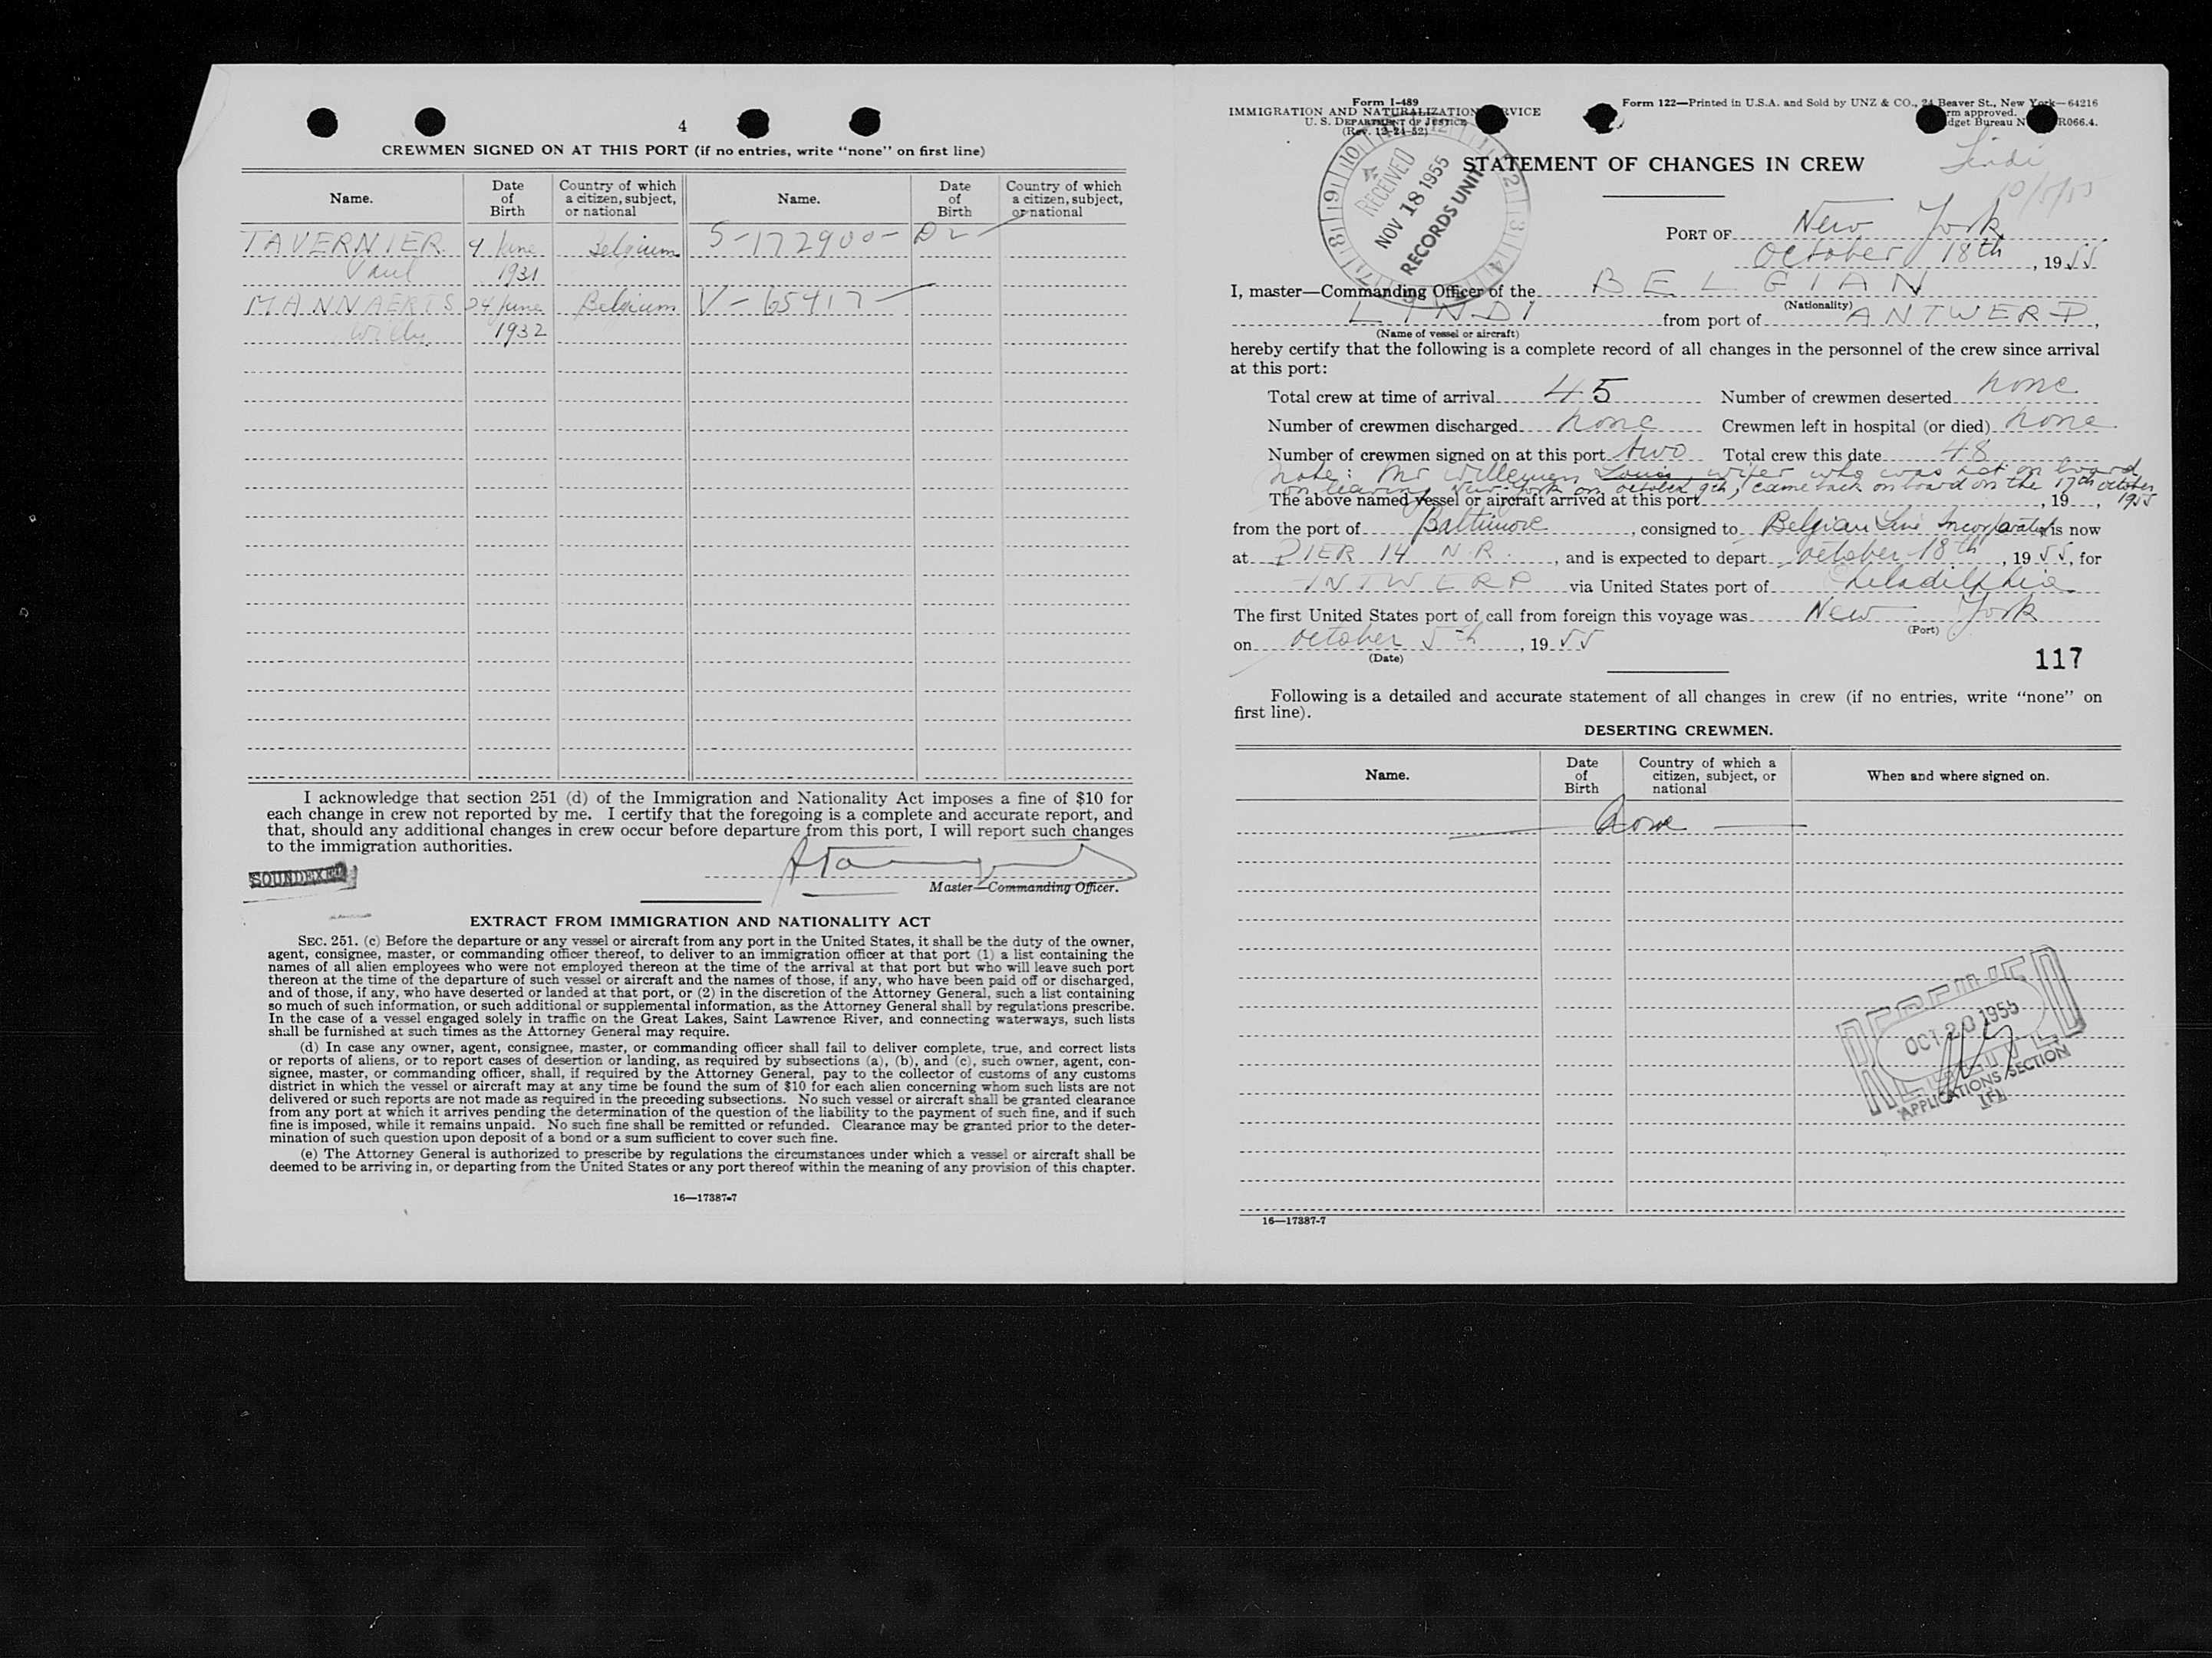 4
CREWMEN SIGNED ON AT THIS PORT (if no entries, write "none" on first line)
Name. Date of Birth Country of which a citizen, subject, or national Name. Date of Birth Country of which a citizen, subject, or national
TAVERNIER 4 June Belgium S-172900- D2
Paul 1931
MANNAERTS 24 June Belgium V-65417
Willy 1932
I acknowledge that section 251 (d) of the Immigration and Nationality Act imposes a fine of $10 for
each change in crew not reported by me. I certify that the foregoing is a complete and accurate report, and
that, should any additional changes in crew occur before departure from this port, I will report such changes
to the immigration authorities.
SOUNDEXED
Master—Commanding Officer.
EXTRACT FROM IMMIGRATION AND NATIONALITY ACT
SEC. 251. (c) Before the departure or any vessel or aircraft from any port in the United States, it shall be the duty of the owner,
agent, consignee, master, or commanding officer thereof, to deliver to an immigration officer at that port (1) a list containing the
names of all alien employees who were not employed thereon at the time of the arrival at that port but who will leave such port
thereon at the time of the departure of such vessel or aircraft and the names of those, if any, who have been paid off or discharged,
and of those, if any, who have deserted or landed at that port, or (2) in the discretion of the Attorney General, such a list containing
so much of such information, or such additional or supplemental information, as the Attorney General shall by regulations prescribe.
In the case of a vessel engaged solely in traffic on the Great Lakes, Saint Lawrence River, and connecting waterways, such lists
shall be furnished at such times as the Attorney General may require.
(d) In case any owner, agent, consignee, master, or commanding officer shall fail to deliver complete, true, and correct lists
or reports of aliens, or to report cases of desertion or landing, as required by subsections (a), (b), and (c), such owner, agent, con-
signee, master, or commanding officer, shall, if required by the Attorney General, pay to the collector of customs of any customs
district in which the vessel or aircraft may at any time be found the sum of $10 for each alien concerning whom such lists are not
delivered or such reports are not made as required in the preceding subsections. No such vessel or aircraft shall be granted clearance
from any port at which it arrives pending the determination of the question of the liability to the payment of such fine, and if such
fine is imposed, while it remains unpaid. No such fine shall be remitted or refunded. Clearance may be granted prior to the deter-
mination of such question upon deposit of a bond or a sum sufficient to cover such fine.
(e) The Attorney General is authorized to prescribe by regulations the circumstances under which a vessel or aircraft shall be
deemed to be arriving in, or departing from the United States or any port thereof within the meaning of any provision of this chapter.
16—17387-7
Form I-489
IMMIGRATION AND NATURALIZATION SERVICE
U. S. DEPARTMENT OF JUSTICE
(Rev. 12-24-52)
Form 122—Printed in U.S.A. and Sold by UNZ & CO., 24 Beaver St., New York—64216
rm approved.
dget Bureau N R066.4.
RECEIVED
NOV 18 1955
RECORDS UNIT
STATEMENT OF CHANGES IN CREW
Lindi
10/5/55
PORT OF New York
October 18th, 1955
I, master—Commanding Officer of the BELGIAN
(Nationality)
LINDI from port of ANTWERP,
(Name of vessel or aircraft)
hereby certify that the following is a complete record of all changes in the personnel of the crew since arrival
at this port:
Total crew at time of arrival 45 Number of crewmen deserted none
Number of crewmen discharged none Crewmen left in hospital (or died) none
Number of crewmen signed on at this port two Total crew this date 48
Note: Mr Willemen Louis wiper who was not on board
on leaving New-York on october 9th, came back on board on the 17th october 1955
The above named vessel or aircraft arrived at this port , 19 ,
from the port of Baltimore, consigned to Belgian Line Incorporated is now
at PIER 14 N.R., and is expected to depart October 18th, 1955, for
ANTWERP via United States port of Philadelphia
The first United States port of call from foreign this voyage was New York
(Port)
on October 5th, 1955
(Date)
117
Following is a detailed and accurate statement of all changes in crew (if no entries, write "none" on
first line).
DESERTING CREWMEN.
Name. Date of Birth Country of which a citizen, subject, or national When and where signed on.
None
RECEIVED
OCT 20 1955
APPLICATIONS SECTION
16—17387-7